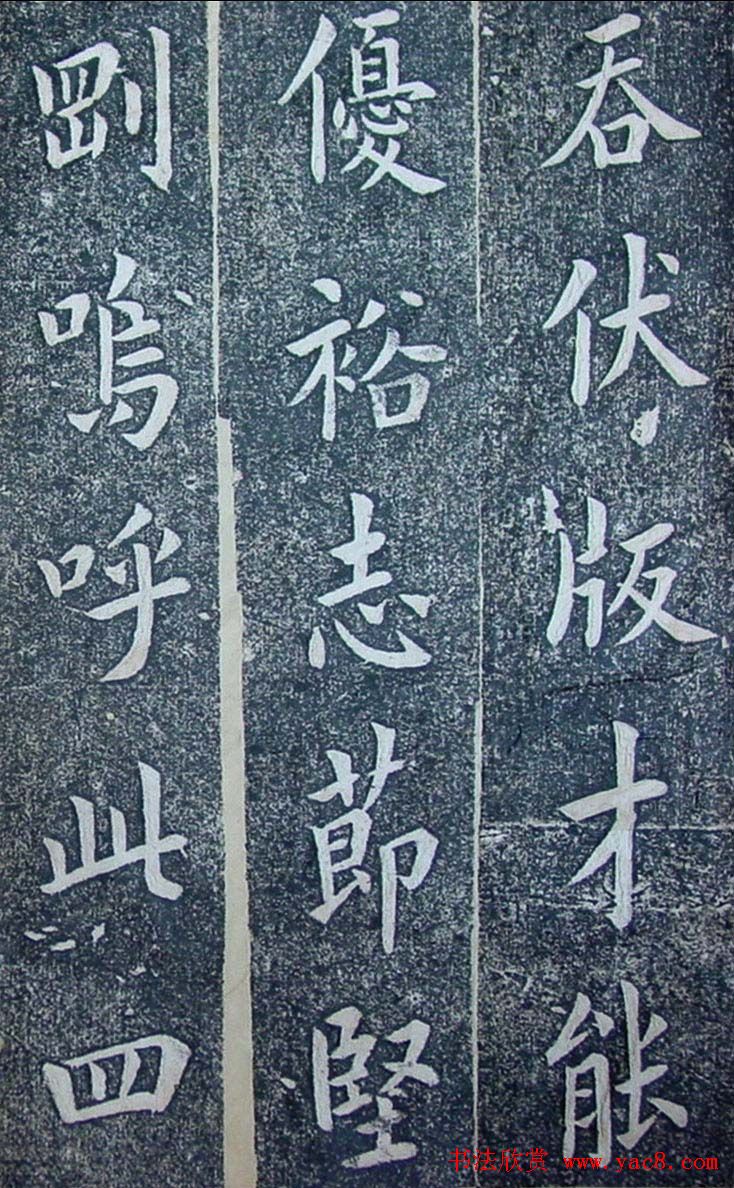 吞伏版才能
優裕志節堅
剛嗚呼此四
书法欣赏 www.yac8.com